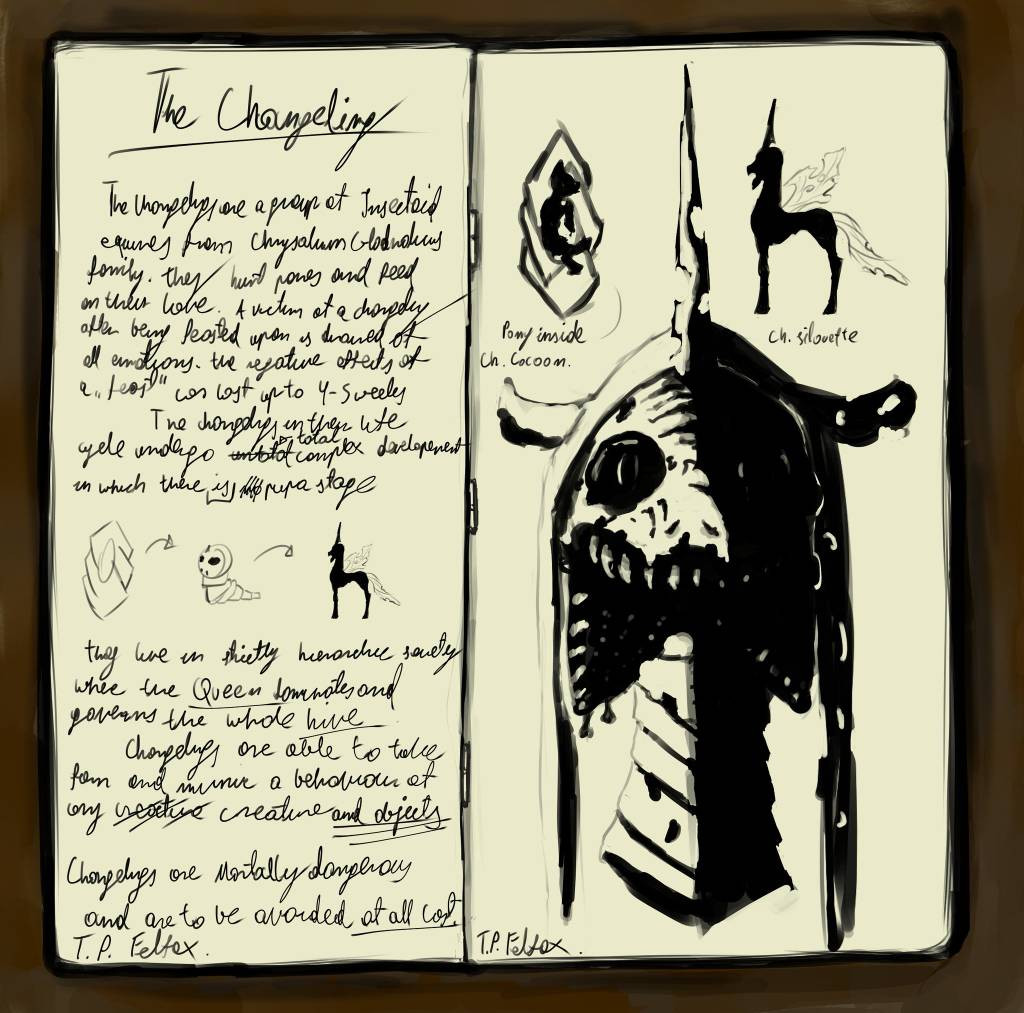 The Changeling
The changelings are a group of Insectoid
equines from Chrysalium
family. They hunt ponies and feed
on their love. A victim of a changeling
after being feasted upon is drained of
all emotions. the negative effects of
a „feast" can last up to 4-5 weeks
The changelings in their life
cycle undergo total complex developement
in which there is pupa stage
they live in strictly hierarchic society
where the Queen dominates and
governs the whole hive
Changelings are able to take
form and mimic a behaviour of
any creature creature and objects
Changelings are Mortally dangerous
and are to be avoided at all cost.
T.P. Felfox.
Pony inside
Ch. Cocoon.
Ch. silouette
T.P. Felfox.